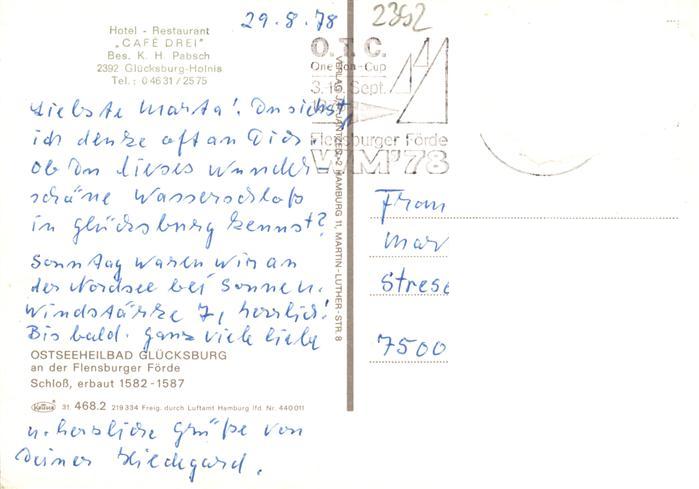 29.8.78
2392
Hotel - Restaurant
„CAFÉ DREI"
Bes. K. H. Pabsch
2392 Glücksburg-Holnis
Tel.: 0 46 31 / 25 75
Liebste Marta! Du siehst
ich denke oft an Dich.
ob Du dieses wunder
schöne Wasserschloß
in glücksburg kennst?
Sonntag waren wir an
der Nordsee bei Sonne u.
Windstärke 7, herrlich!
Bis bald. ganz viele liebe
OSTSEEHEILBAD GLÜCKSBURG
an der Flensburger Förde
Schloß, erbaut 1582-1587
Krüger 31. 468.2 219 334 Freig. durch Luftamt Hamburg lfd. Nr. 440 011
u. herzliche Grüße von
Deiner Hildegard.
HAMBURG 11, MARTIN-LUTHER-STR. 8
O.T.C.
One Ton-Cup
Sept.
Flensburger Förde
WM'78
Frau
Mar
Strese
7500